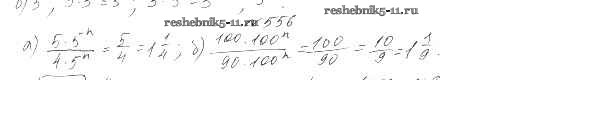 reshebnik5-11.ru
reshebnik5-11.ru
556
а) 5·5⁻ⁿ/4·5⁻ⁿ = 5/4 = 1 1/4 ; б) 100·100ⁿ/90·100ⁿ = 100/90 = 10/9 = 1 1/9 .